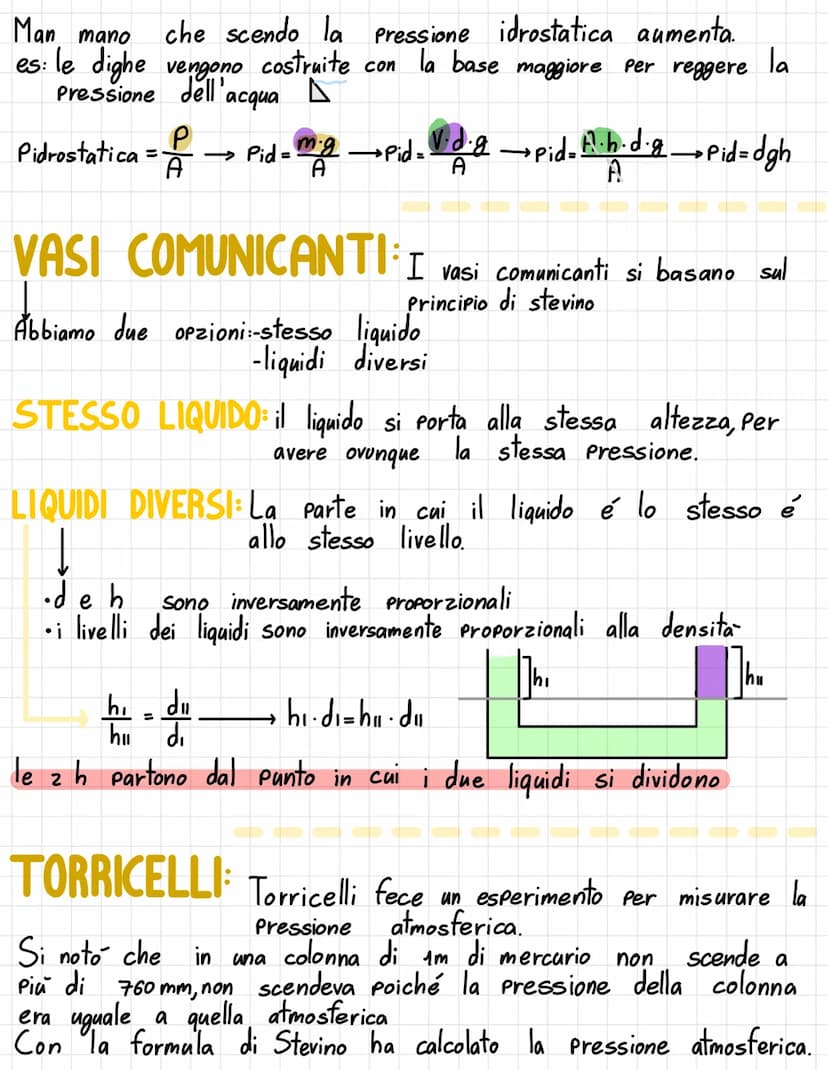 Man mano che scendo la pressione idrostatica aumenta.
es: le dighe vengono costruite con la base maggiore per reggere la
pressione dell'acqua
Pidrostatica = P/A → Pid = m·g/A → Pid = V·d·g/A → Pid = A·h·d·g/A → Pid = dgh
VASI COMUNICANTI: I vasi comunicanti si basano sul
principio di stevino
Abbiamo due opzioni:-stesso liquido
-liquidi diversi
STESSO LIQUIDO: il liquido si porta alla stessa altezza, per
avere ovunque la stessa pressione.
LIQUIDI DIVERSI: La parte in cui il liquido é lo stesso é
allo stesso livello.
·d e h sono inversamente proporzionali
·i livelli dei liquidi sono inversamente proporzionali alla densità
hI hII
hI/hII = dII/dI → hI·dI=hII·dII
le 2 h partono dal punto in cui i due liquidi si dividono
TORRICELLI: Torricelli fece un esperimento per misurare la
pressione atmosferica.
Si notò che in una colonna di 1m di mercurio non scende a
più di 760 mm, non scendeva poiché la pressione della colonna
era uguale a quella atmosferica
Con la formula di Stevino ha calcolato la pressione atmosferica.